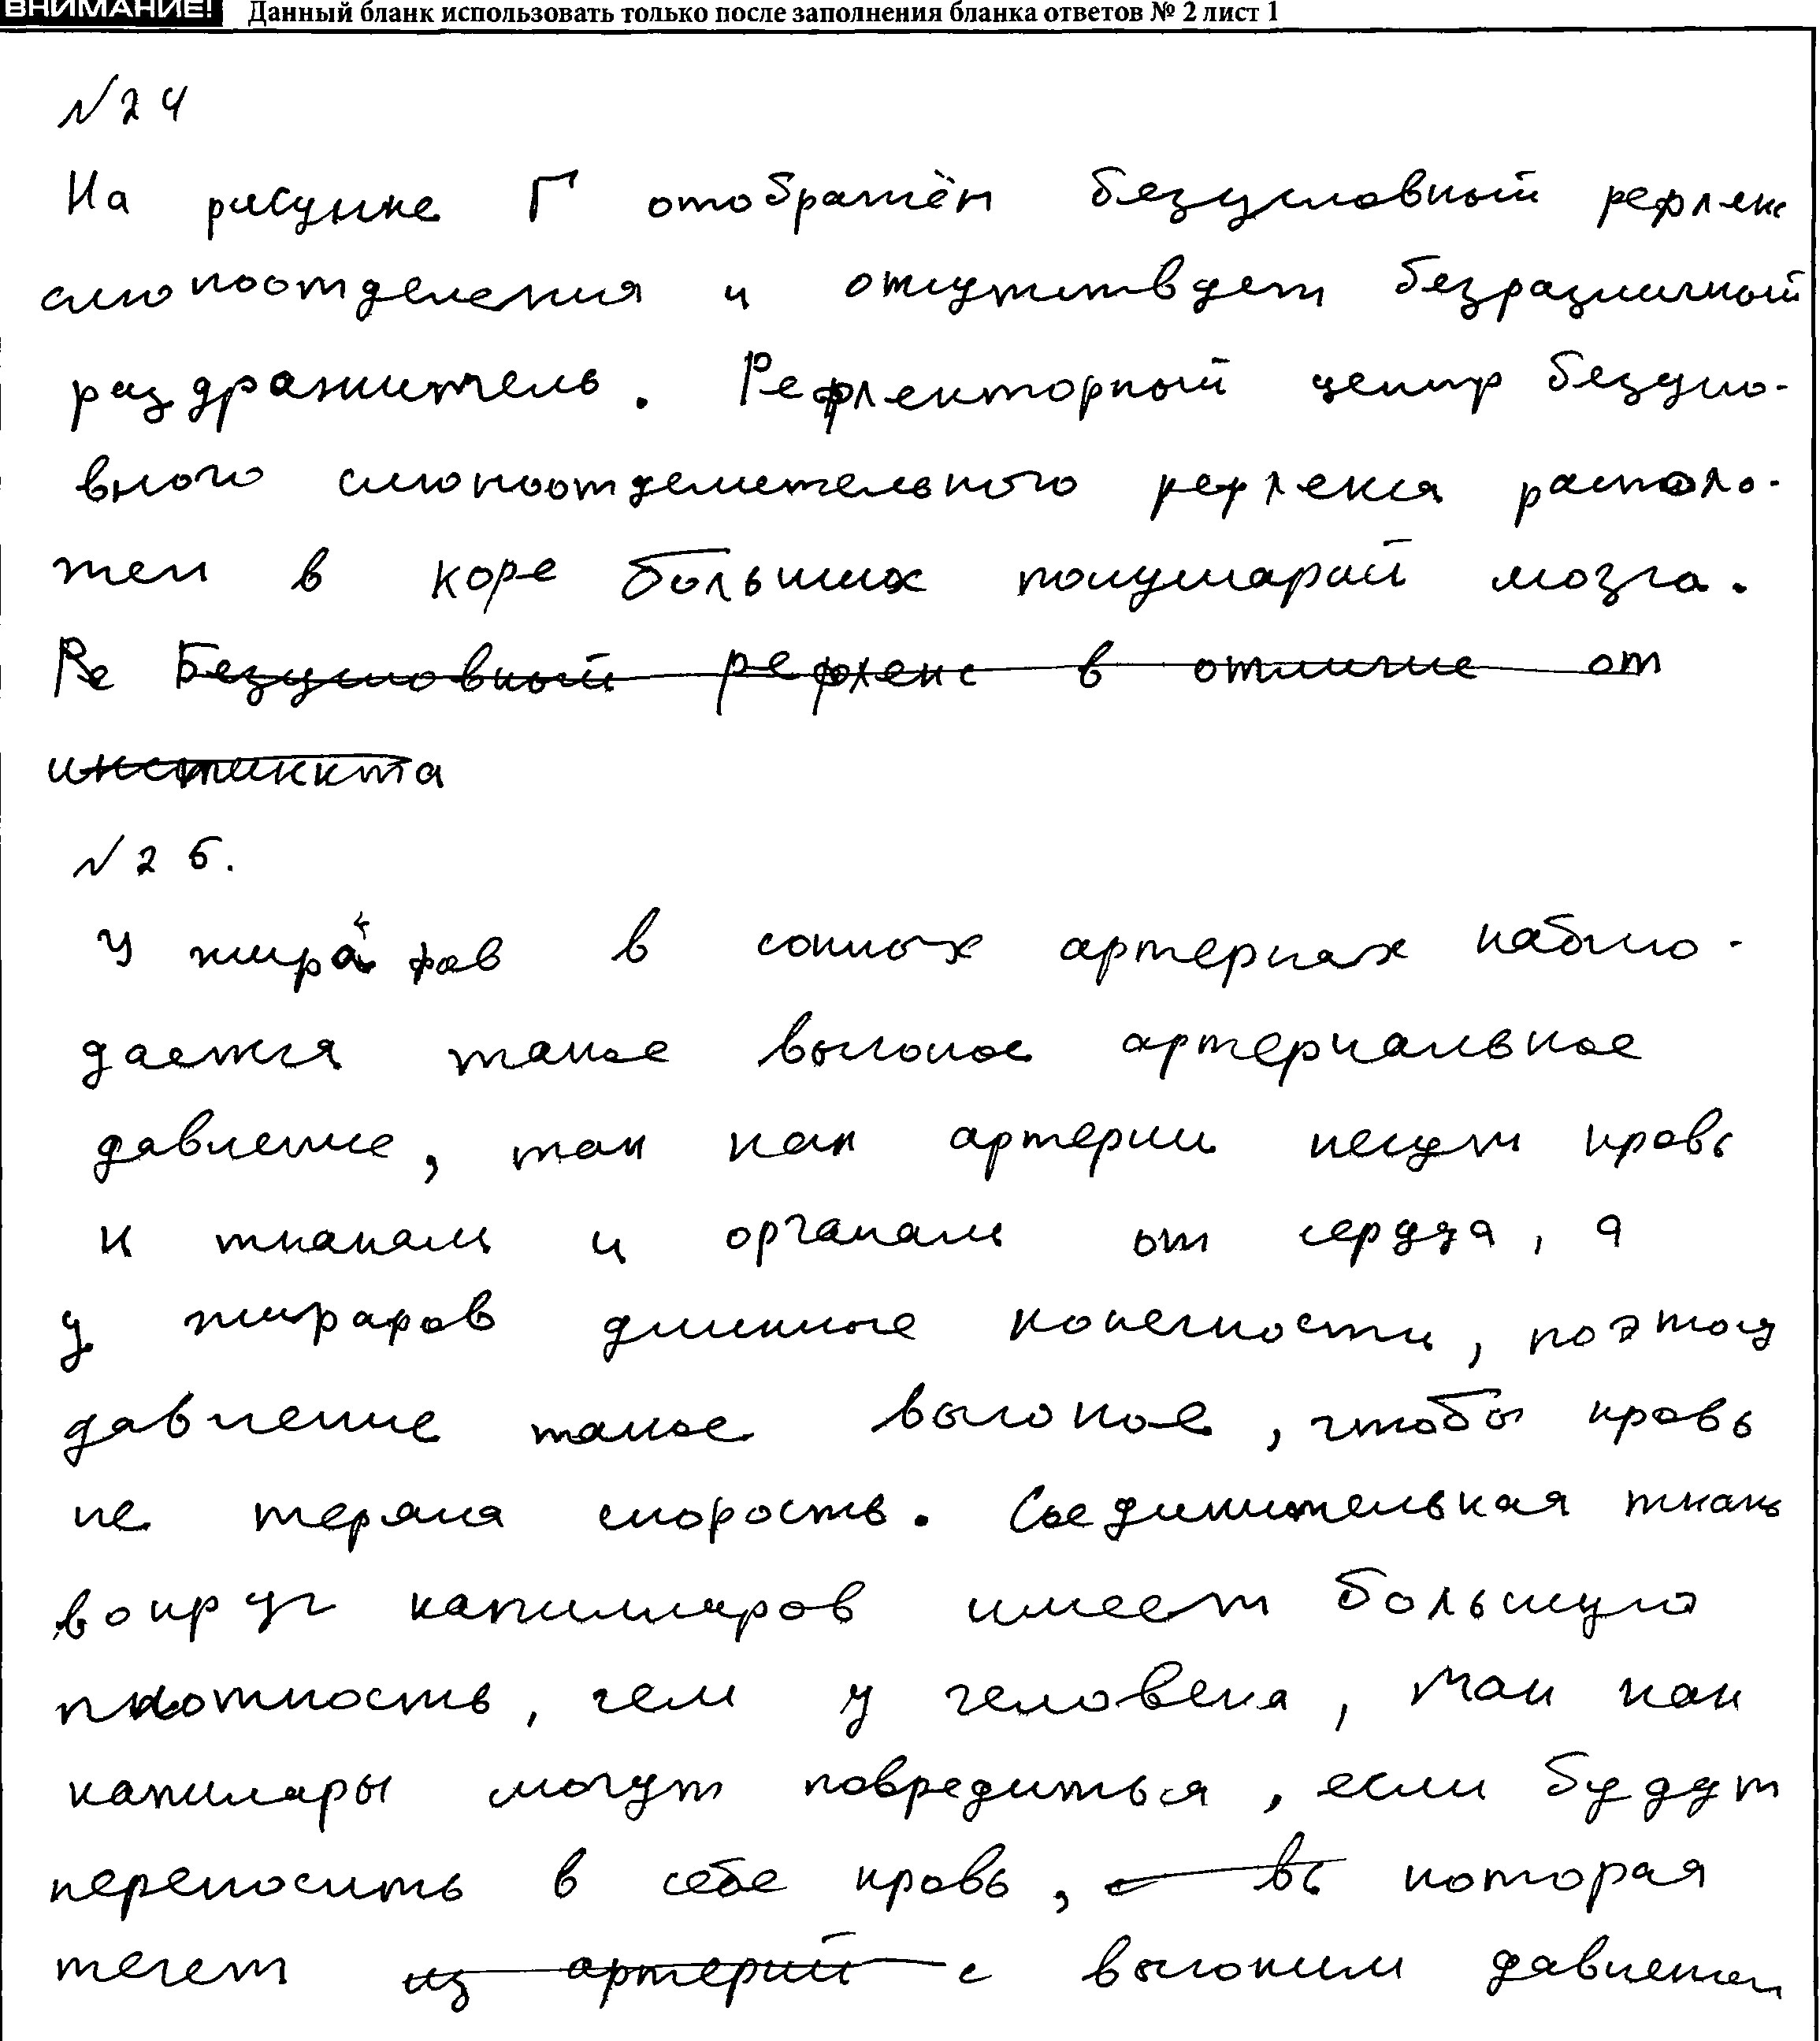 ВНИМАНИЕ! Данный бланк использовать только после заполнения бланка ответов № 2 лист 1
№24
На рисунке Г отображён безусловный рефлекс
слюноотделения и отсутствует безразличный
раздражитель. Рефлекторный центр безусло-
вного слюноотделительного рефлекса располо-
жен в коре больших полушарий мозга.
Ре Безусловный рефлекс в отличие от
инстинкта
№26.
У жирафов в сонных артериях наблю-
дается такое высокое артериальное
давление, так как артерии несут кровь
к тканям и органам от сердца, а
у жирафов длинные конечности, поэтому
давление такое высокое, чтобы кровь
не теряла скорость. Соединительная ткань
вокруг капилляров имеет большую
плотность, чем у человека, так как
капилары могут повредиться, если будут
переносить в себе кровь, которая
течет из артерий с высоким давлением